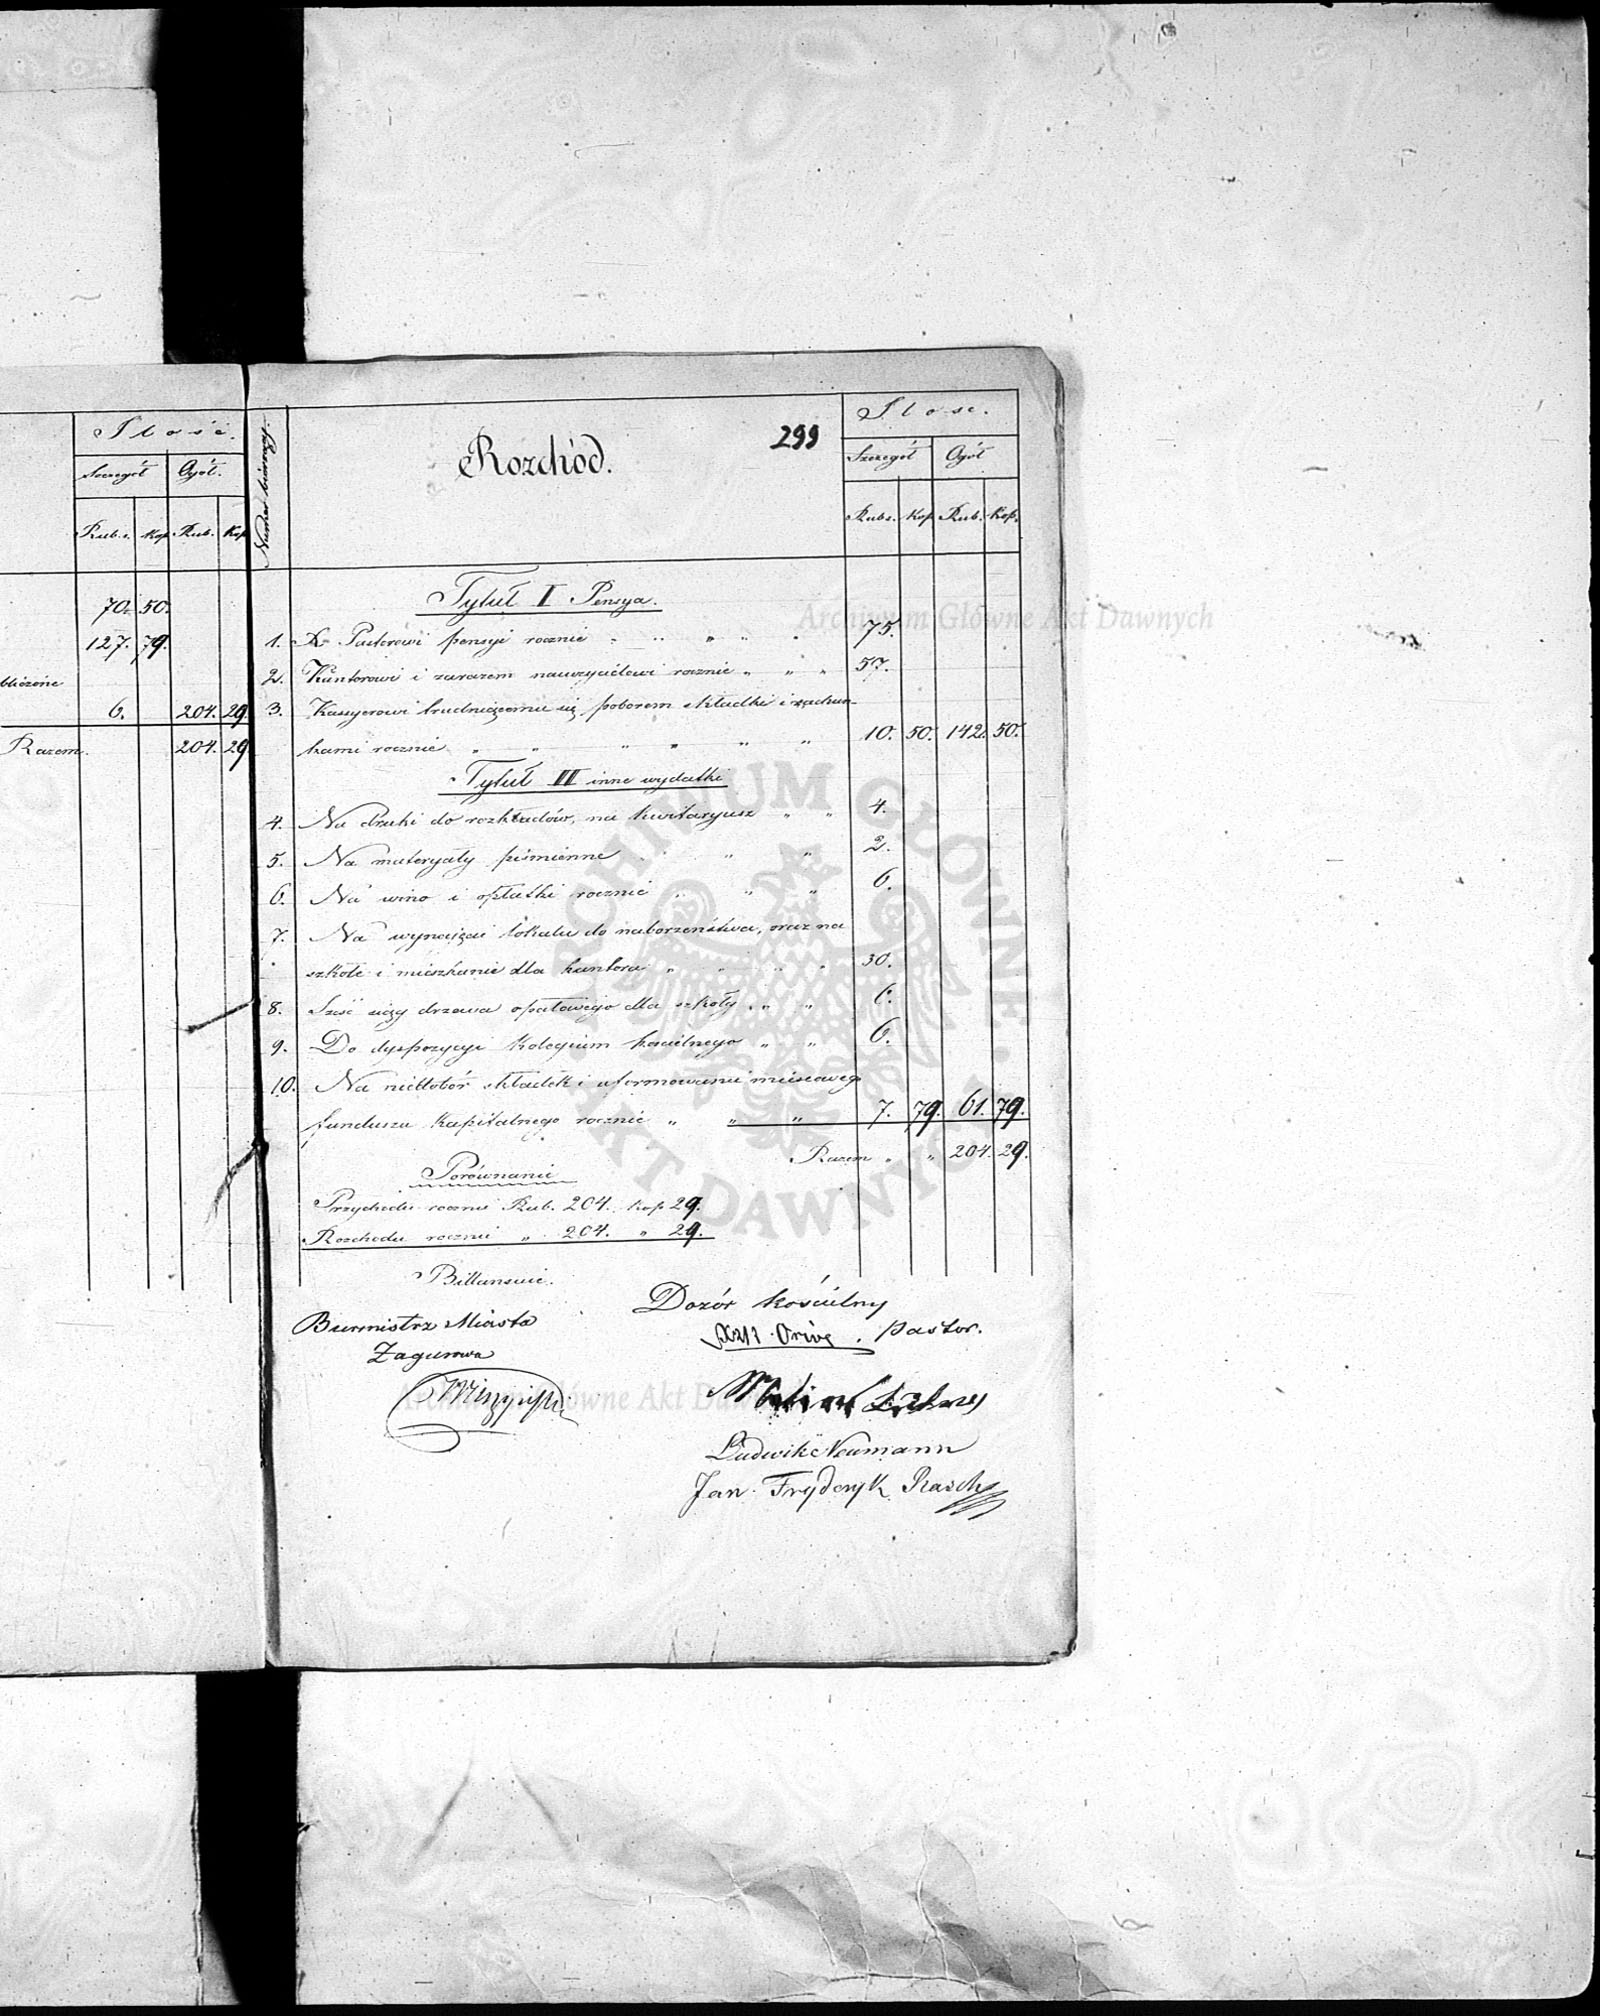 Ilość.
Szczegół Ogół.
Rub. s. Kop. Rub. Kop.
70. 50.
127. 79.
6. 204. 29
Razem. 204. 29
299
Numer bieżący.
Rozchód.
Ilość.
Szczegół Ogół
Rubs. Kop Rub. Kop.
Tytuł I Pensya.
1. X. Pastorowi pensyi rocznie „ „ „ „ „ 75.
2. Kantorowi i zarazem nauczycielowi rocznie „ „ „ 57.
3. Kassyerowi trudniącemu się poborem składki i rachun-
kami rocznie „ „ „ „ „ „ 10. 50. 142. 50.
Tytuł II inne wydatki
4. Na druki do rozkładów, na kwitaryusz „ „ 4.
5. Na materyały piśmienne „ „ „ 2.
6. Na wino i opłatki rocznie „ „ „ 6.
7. Na wynajęcie lokalu do naborzeństwa, oraz na
szkołe i mieszkanie dla kantora „ „ „ „ 30.
8. Sześć siąży drzewa opałowego dla szkoły „ „ „ 6.
9. Do dyspozycyi Kolegium kościelnego „ „ 6.
10. Na niedobór składek i uformowanie miejscowego
funduszu Kapitalnego rocznie „ „ „ 7. 79. 61. 79.
Razem „ „ 204. 29.
Porównanie
Przychodu rocznie Rub. 204. kop 29.
Rozchodu rocznie „ 204. „ 29.
Billansuie.
Dozór kościelny
Burmistrz Miasta
Zagurowa
Pastor.
Ludwik Neumann
Jan Fryderyk Rasch
Archiwum Główne Akt Dawnych
ARCHIWUM GŁÓWNE AKT DAWNYCH
Archiwum Główne Akt Dawnych